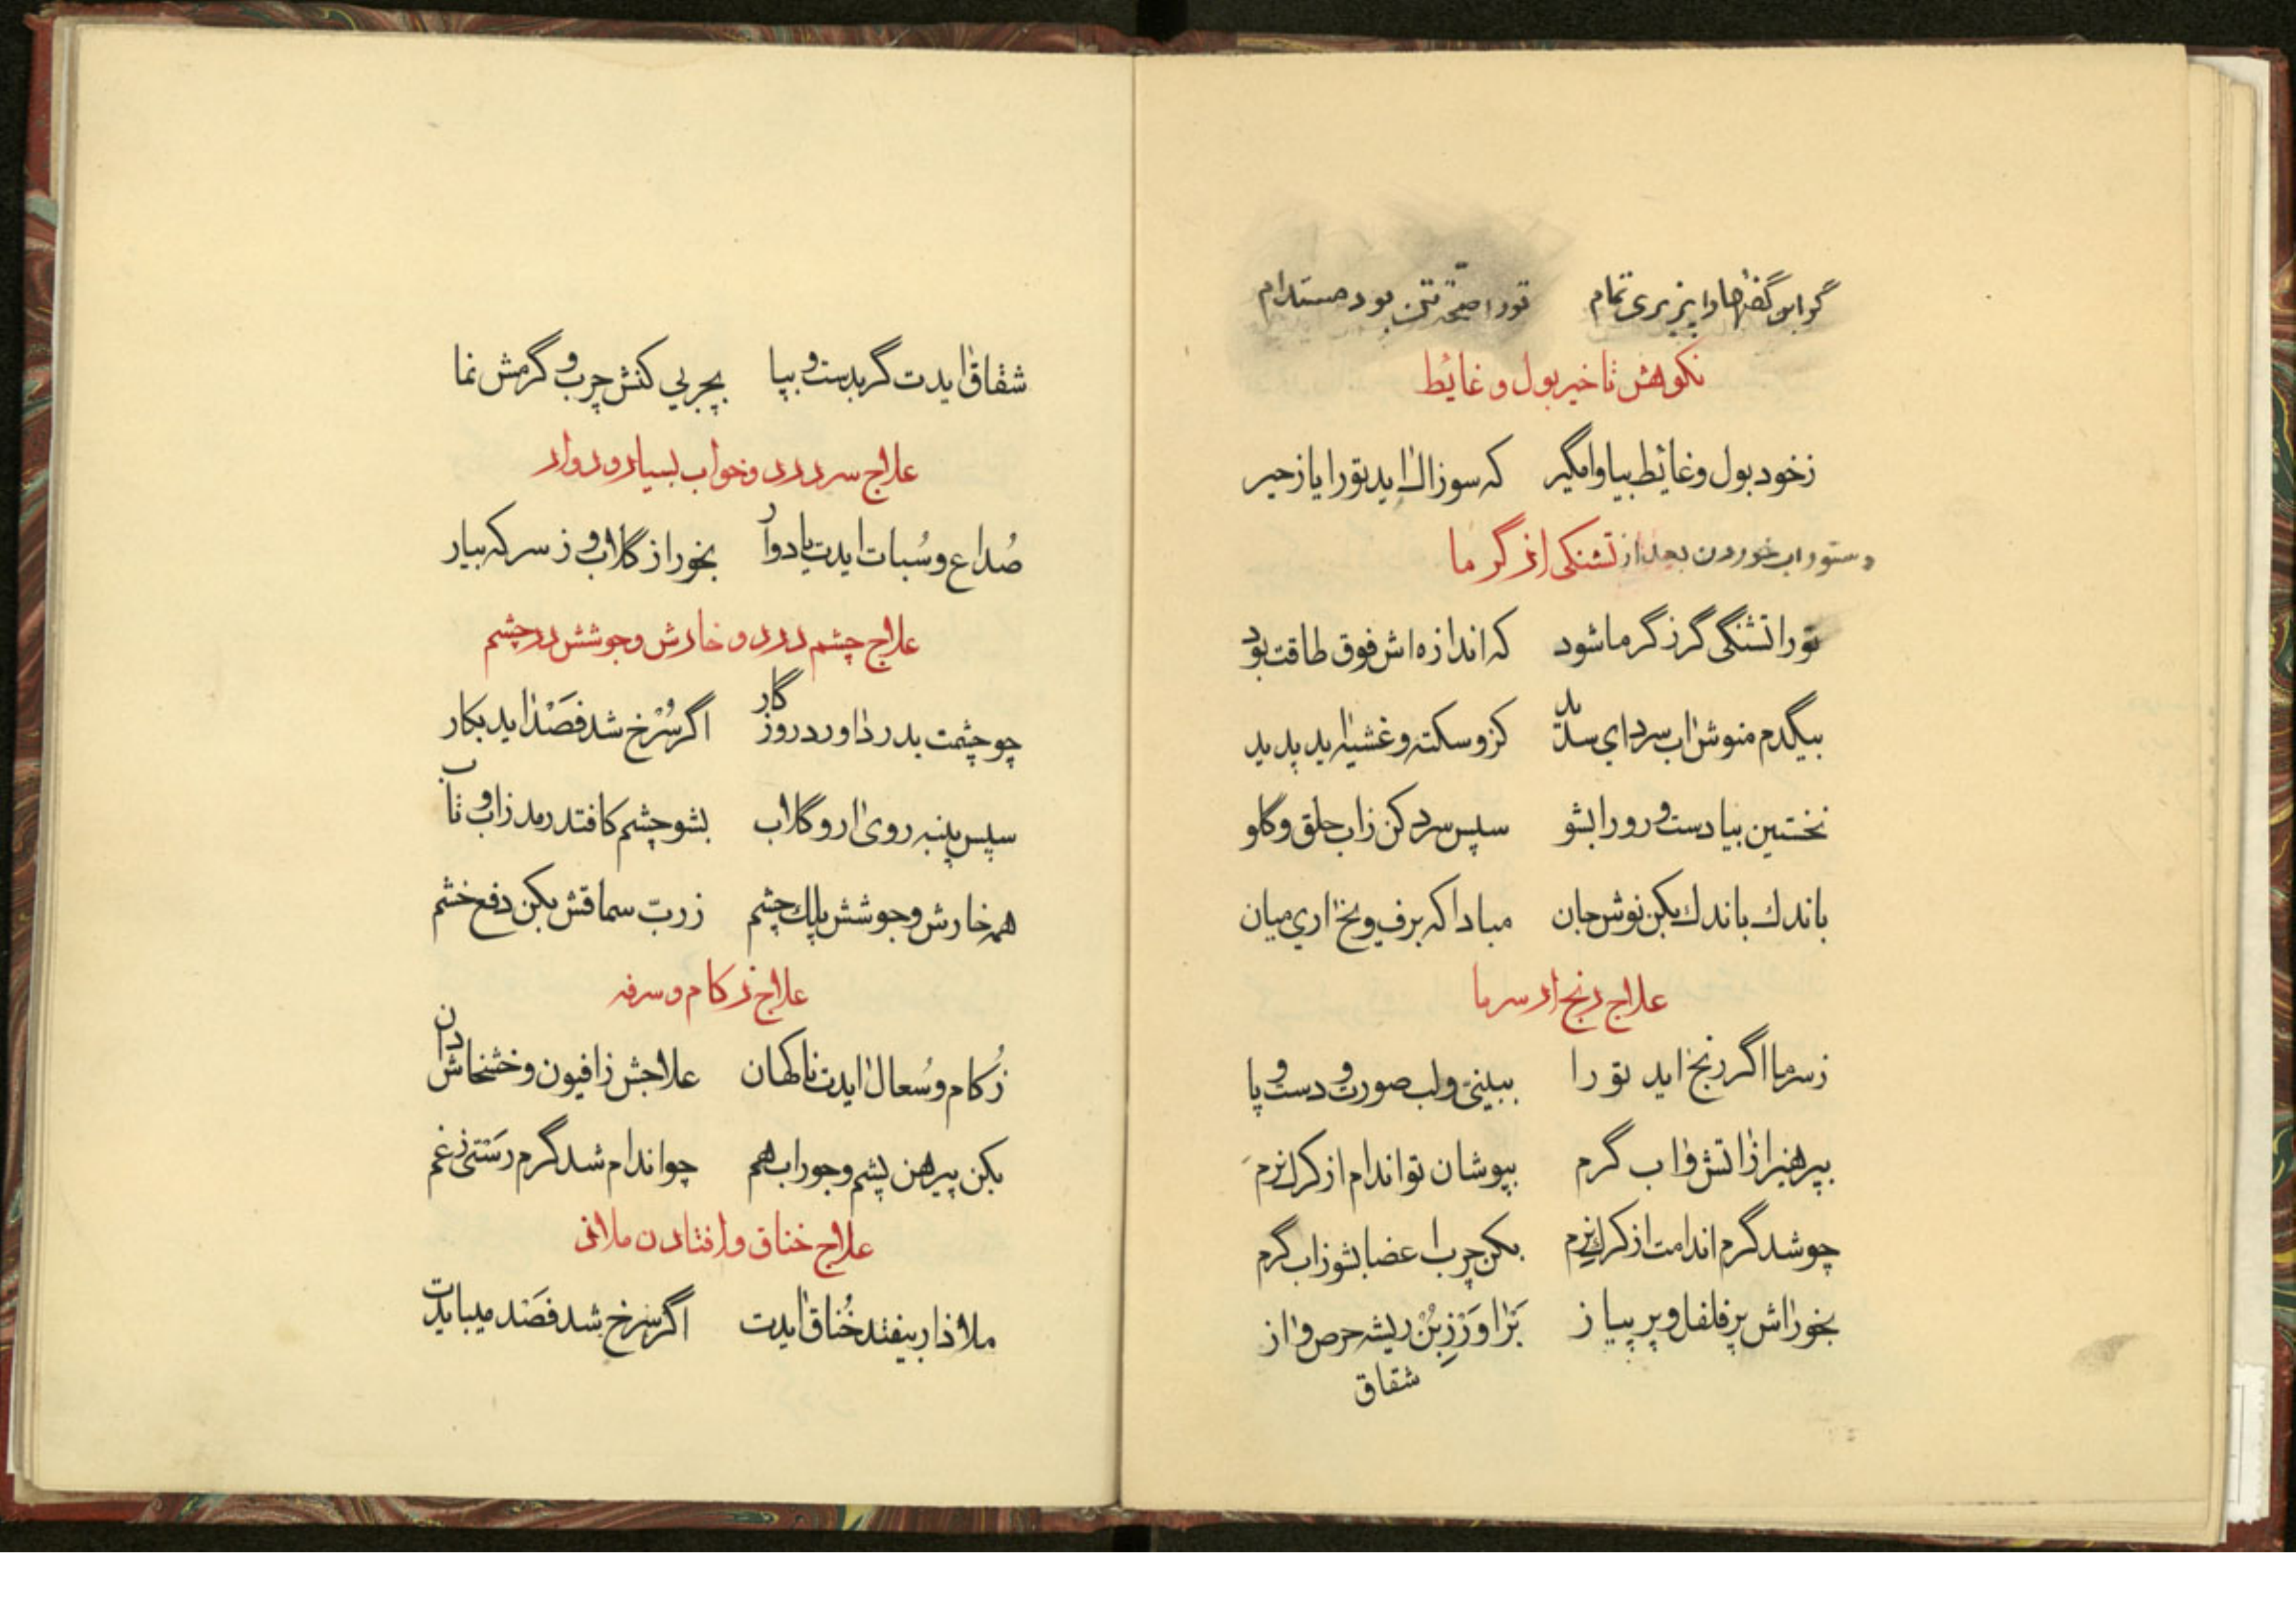 گر این گفتها را پذیری تمام تو را صحّة تن بود مستدام
نکوهش تاخیر بول و غائط
زخود بول و غائط بیا وا مگیر که سوزاک اید تو را یا زحیر
دستور اب خوردن بعد از تشنکی از گرما
تو را تشنگی گر ز گرما شود که اندازه‌اش فوق طاقت بود
بیگدم منوش اب سرد ای سدید کزو سکته و غشیه اید پدید
نخستین بیا دست و رو را بشو سپس سرد کن زاب حلق و گلو
باندك باندك بکن نوش جان مبادا که برف و یخ اری میان
علاج رنج از سرما
زسرما اگر رنج اید تو را ببینی و لب و صورت و دست و پا
بپرهیز از اتش و اب گرم بپوشان تو اندام از کرك نرم
چو شد گرم اندامت از کرك نرم بکن چرب اعضا بشو زاب گرم
بخور اش پر فلفل و پر پیاز بَرْاوَرْ زِبُنْ ریشه حرص و از
شقاق
شقاق ایدت گر بدست و بپا بچربی کنش چرب و گرمش نما
علاج سردرد و خواب بسیار و دوار
صُداع و سُبات ایدت یا دوار بخور از گلاب و ز سرکه بیار
علاج چشم درد و خارش و جوشش در چشم
چو چشمت بدرد اورد روزگار اگر سُرْخ شد فَصَدْ اید بکار
سپس پنبه روی ار و گلاب بشو چشم کافتد رمد زاب و تاب
همه خارش و جوشش پلك چشم ز ربّ سماقش بکن دفع خشم
علاج زکام و سرفه
زُکام و سُعال ایدت ناگهان علاجش ز افیون و خشخاش دان
بکن پیرهن پشم و جوراب هم چو اندام شد گرم رَسْتی ز غم
علاج خناق و افتادن ملاذ
ملاذ ار بیفتد خُناق ایدت اگر سرخ شد فَصَد میبایدت